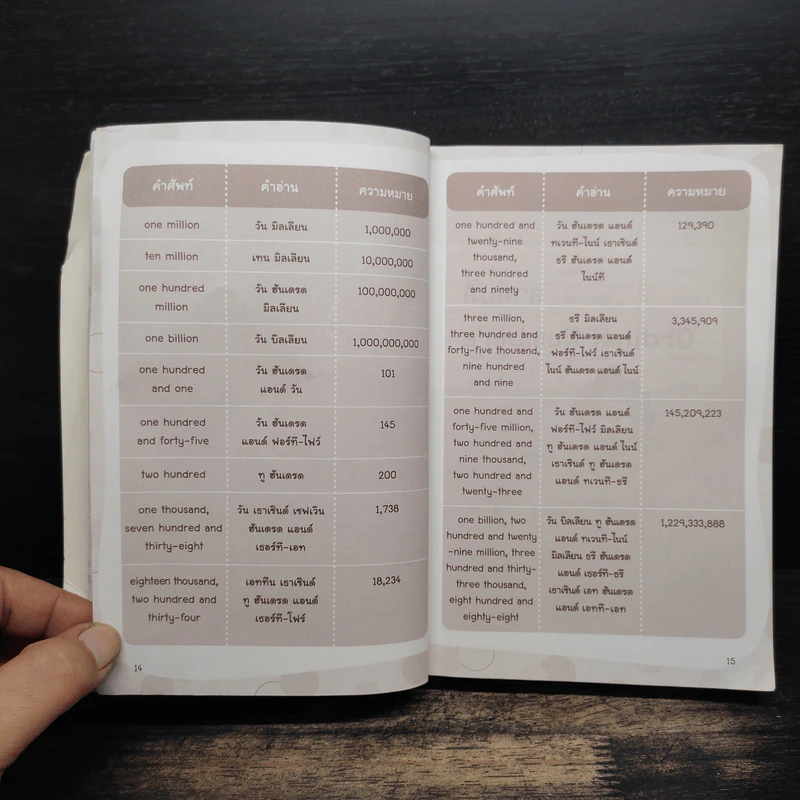 คำศัพท์ คำอ่าน ความหมาย
one million วัน มิลเลียน 1,000,000
ten million เทน มิลเลียน 10,000,000
one hundred วัน ฮันเดรด 100,000,000
million มิลเลียน
one billion วัน บิลเลียน 1,000,000,000
one hundred วัน ฮันเดรด 101
and one แอนด์ วัน
one hundred วัน ฮันเดรด 145
and forty-five แอนด์ ฟอร์ที-ไฟว์
two hundred ทู ฮันเดรด 200
one thousand, วัน เธาเซินด์ เซฟเวิน 1,738
seven hundred and ฮันเดรด แอนด์
thirty-eight เธอร์ที-เอท
eighteen thousand, เอททีน เธาเซินด์ 18,234
two hundred and ทู ฮันเดรด แอนด์
thirty-four เธอร์ที-โฟร์
14
คำศัพท์ คำอ่าน ความหมาย
one hundred and วัน ฮันเดรด แอนด์ 129,390
twenty-nine ทเวนที-ไนน์ เธาเซินด์
thousand, ธรี ฮันเดรด แอนด์
three hundred ไนน์ที
and ninety
three million, ธรี มิลเลียน 3,345,909
three hundred and ธรี ฮันเดรด แอนด์
forty-five thousand, ฟอร์ที-ไฟว์ เธาเซินด์
nine hundred ไนน์ ฮันเดรด แอนด์ ไนน์
and nine
one hundred and วัน ฮันเดรด แอนด์ 145,209,223
forty-five million, ฟอร์ที-ไฟว์ มิลเลียน
two hundred and ทู ฮันเดรด แอนด์ ไนน์
nine thousand, เธาเซินด์ ทู ฮันเดรด
two hundred and แอนด์ ทเวนที-ธรี
twenty-three
one billion, two วัน บิลเลียน ทู ฮันเดรด 1,229,333,888
hundred and twenty แอนด์ ทเวนที-ไนน์
-nine million, three มิลเลียน ธรี ฮันเดรด
hundred and thirty- แอนด์ เธอร์ที-ธรี
three thousand, เธาเซินด์ เอท ฮันเดรด
eight hundred and แอนด์ เอทที-เอท
eighty-eight
15